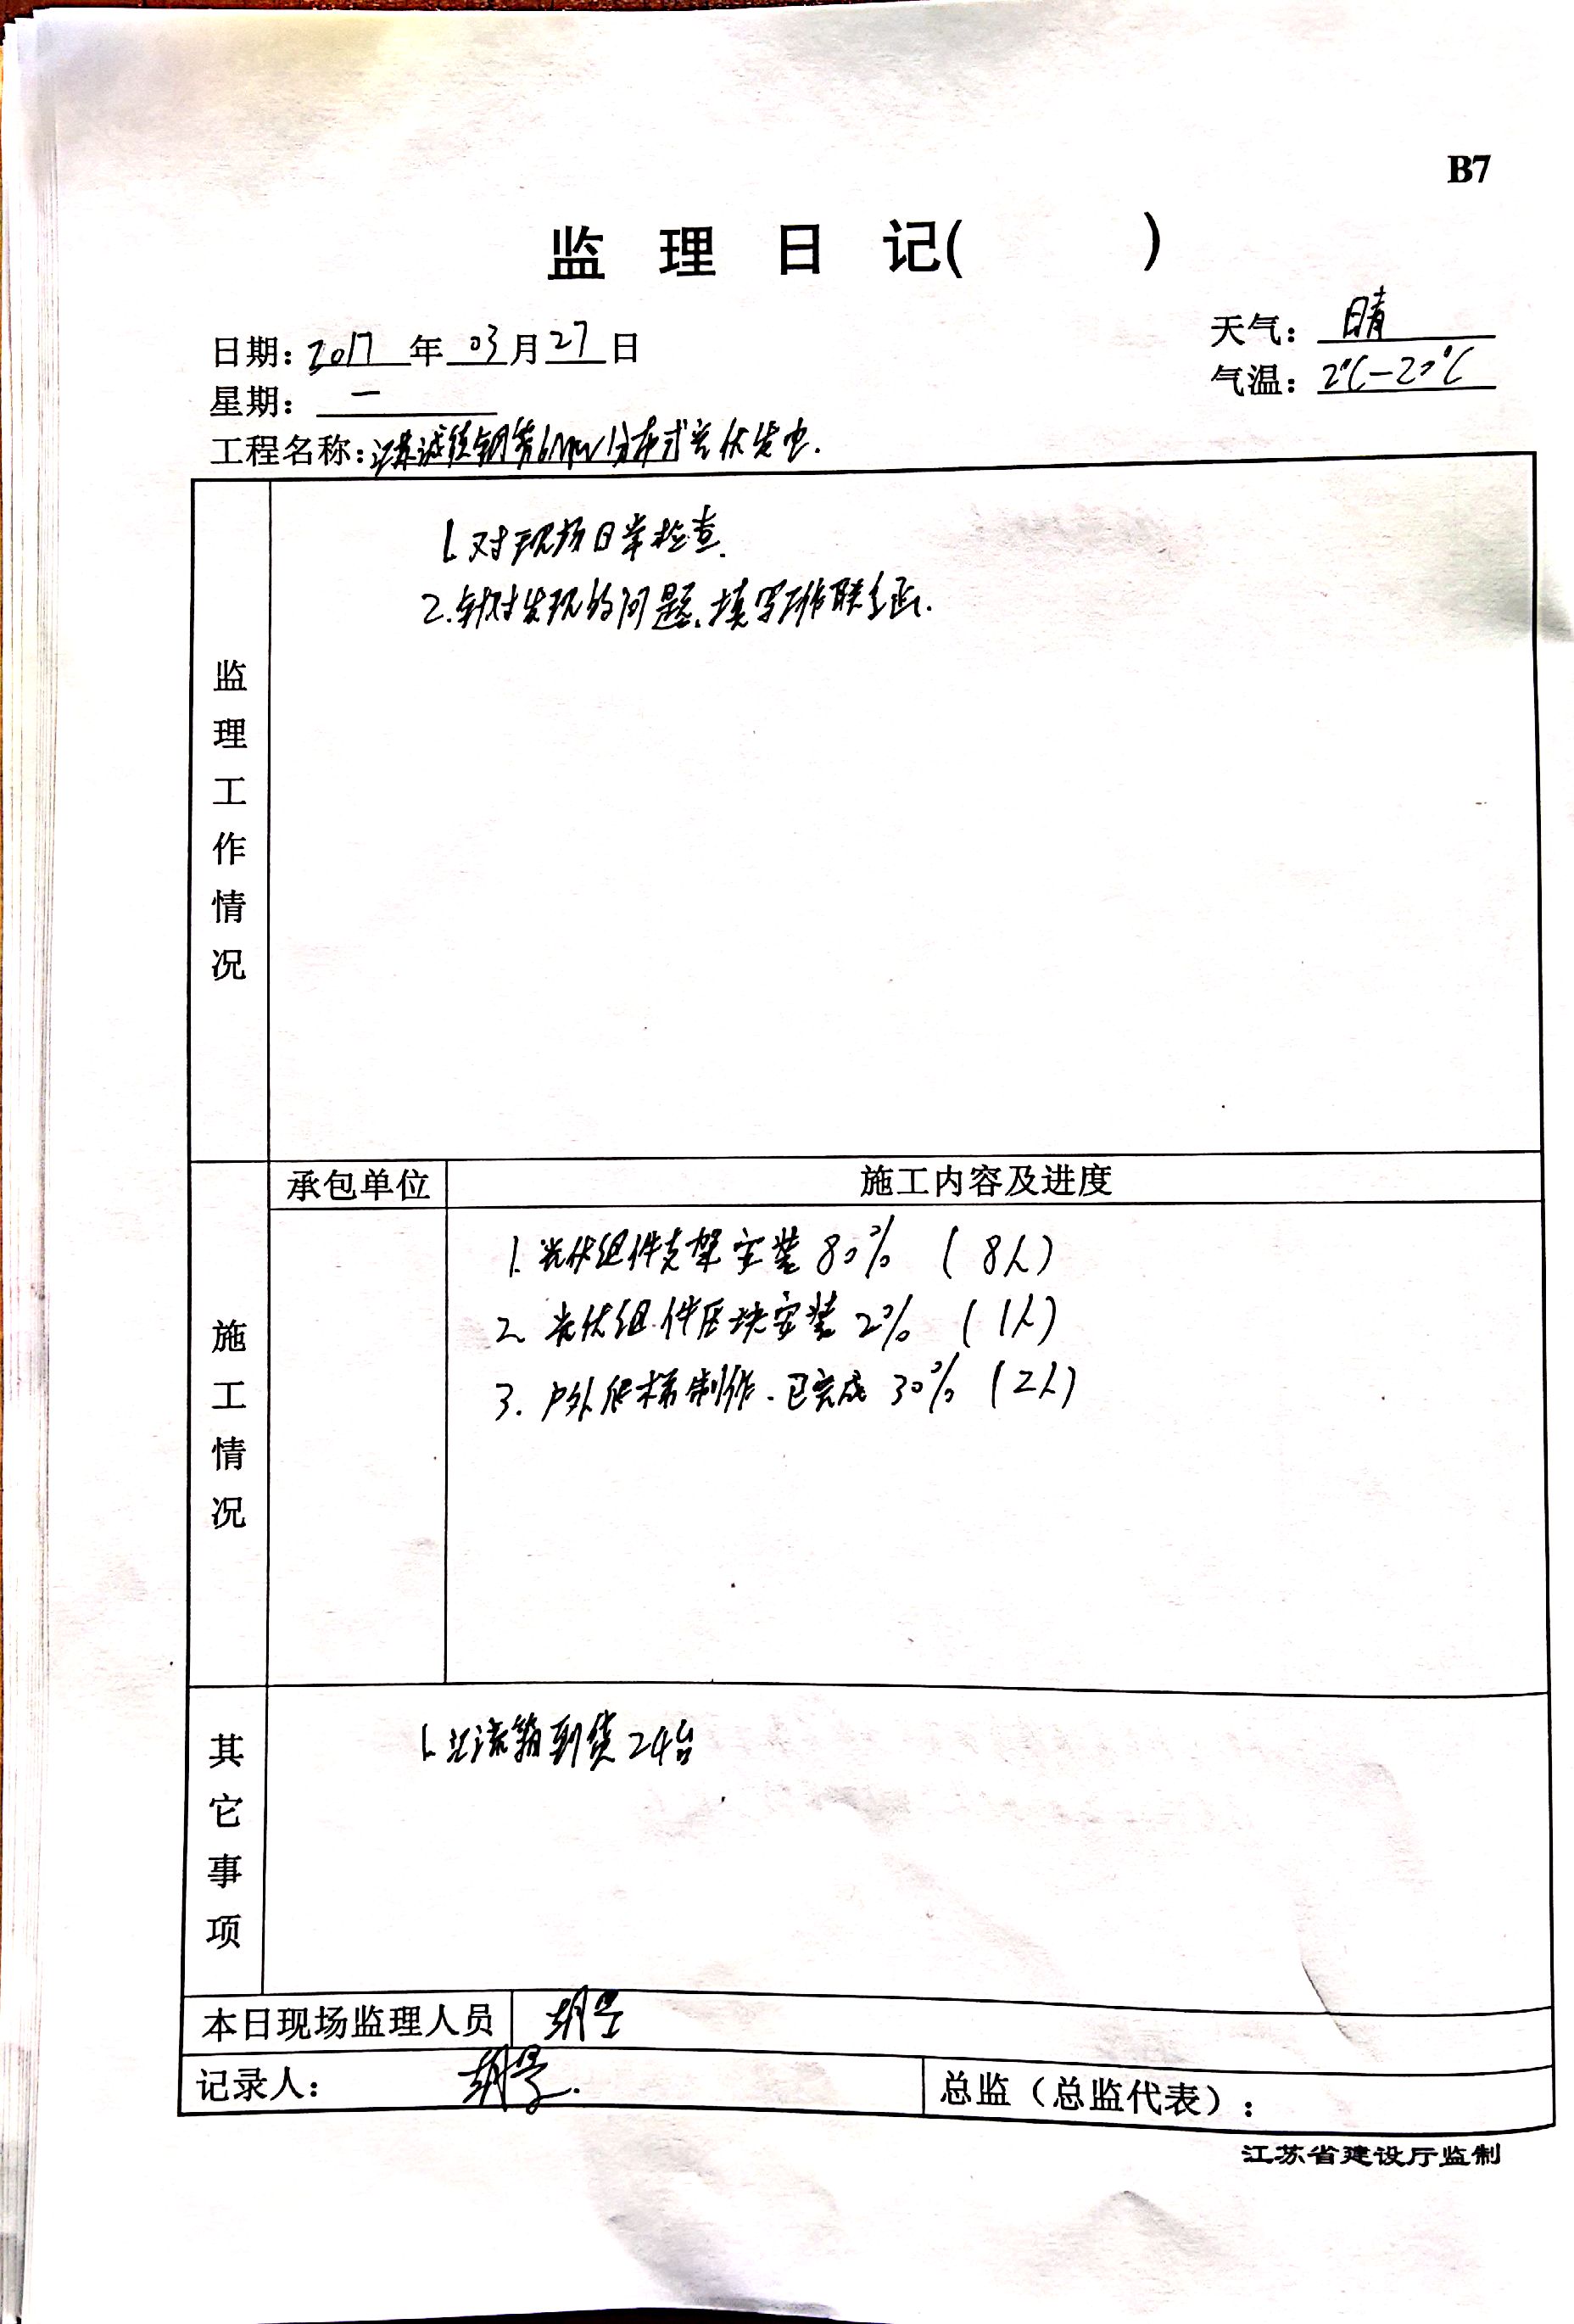 B7
监理日记( )
日期：2017年03月27日
天气：晴
星期：一
气温：2℃-20℃
工程名称：江苏诚德钢管6MW分布式光伏发电.
监理工作情况
1.对现场日常检查.
2.针对发现的问题、填写工作联系函.
施工情况
承包单位 施工内容及进度
1.光伏组件支架安装80% (8人)
2.光伏组件压块安装2% (1人)
3.户外爬梯制作.已完成30% (2人)
其它事项
1.汇流箱到货24台
本日现场监理人员 胡
记录人： 胡
总监（总监代表）：
江苏省建设厅监制